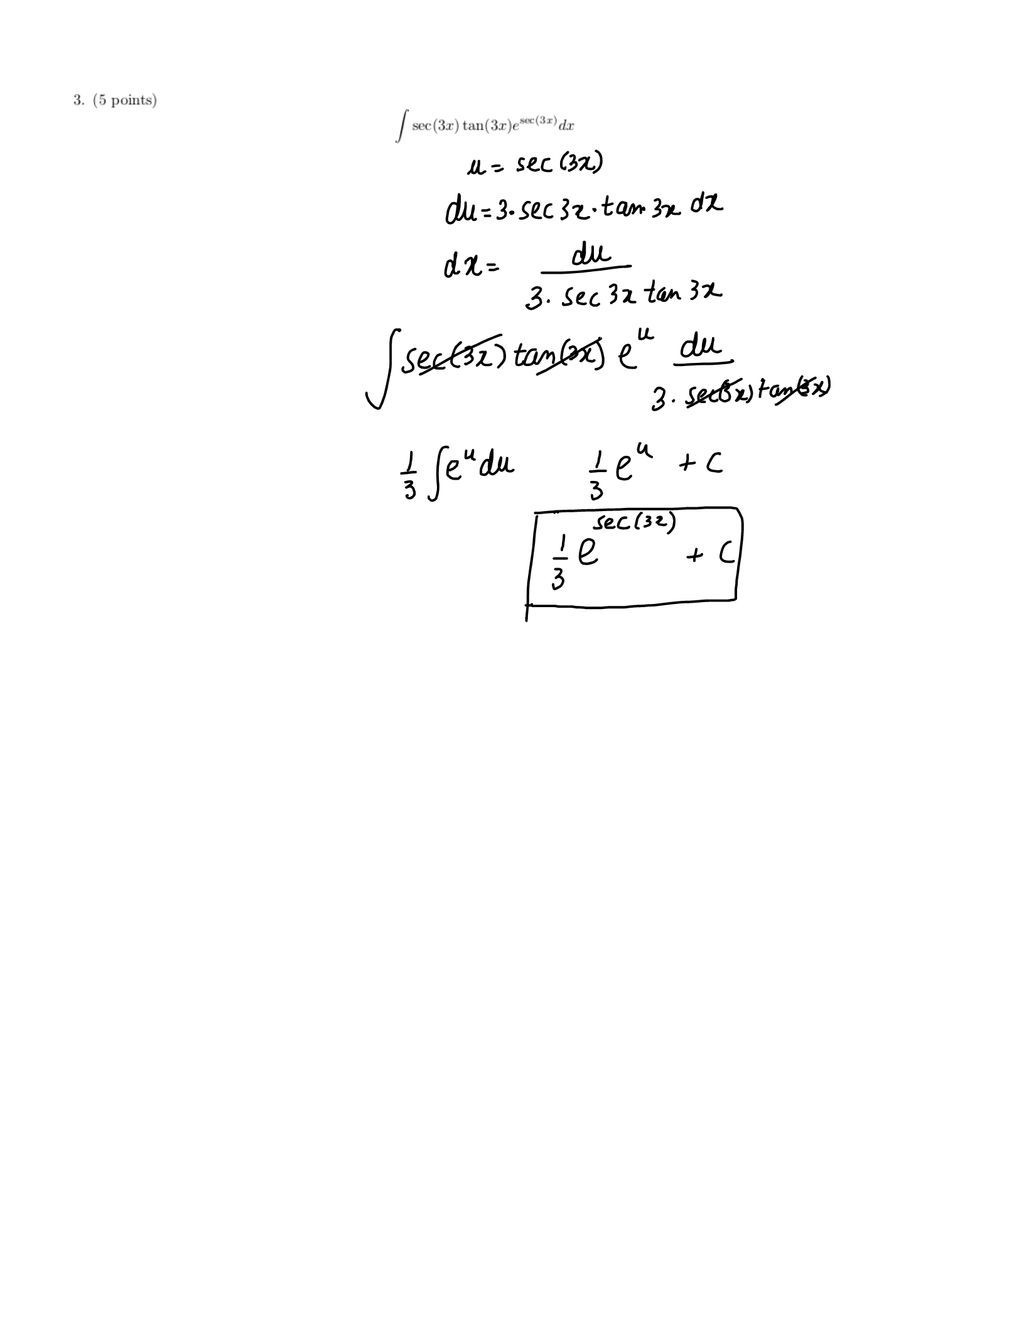 3. (5 points)
∫ sec(3x) tan(3x)e^{sec(3x)} dx
u = sec (3x)
du = 3 · sec 3x · tan 3x dx
dx = du / (3 · sec 3x tan 3x)
∫ sec(3x) tan(3x) e^u du / (3 · sec(3x) tan(3x))
1/3 ∫ e^u du    1/3 e^u + c
1/3 e^{sec(3x)} + C